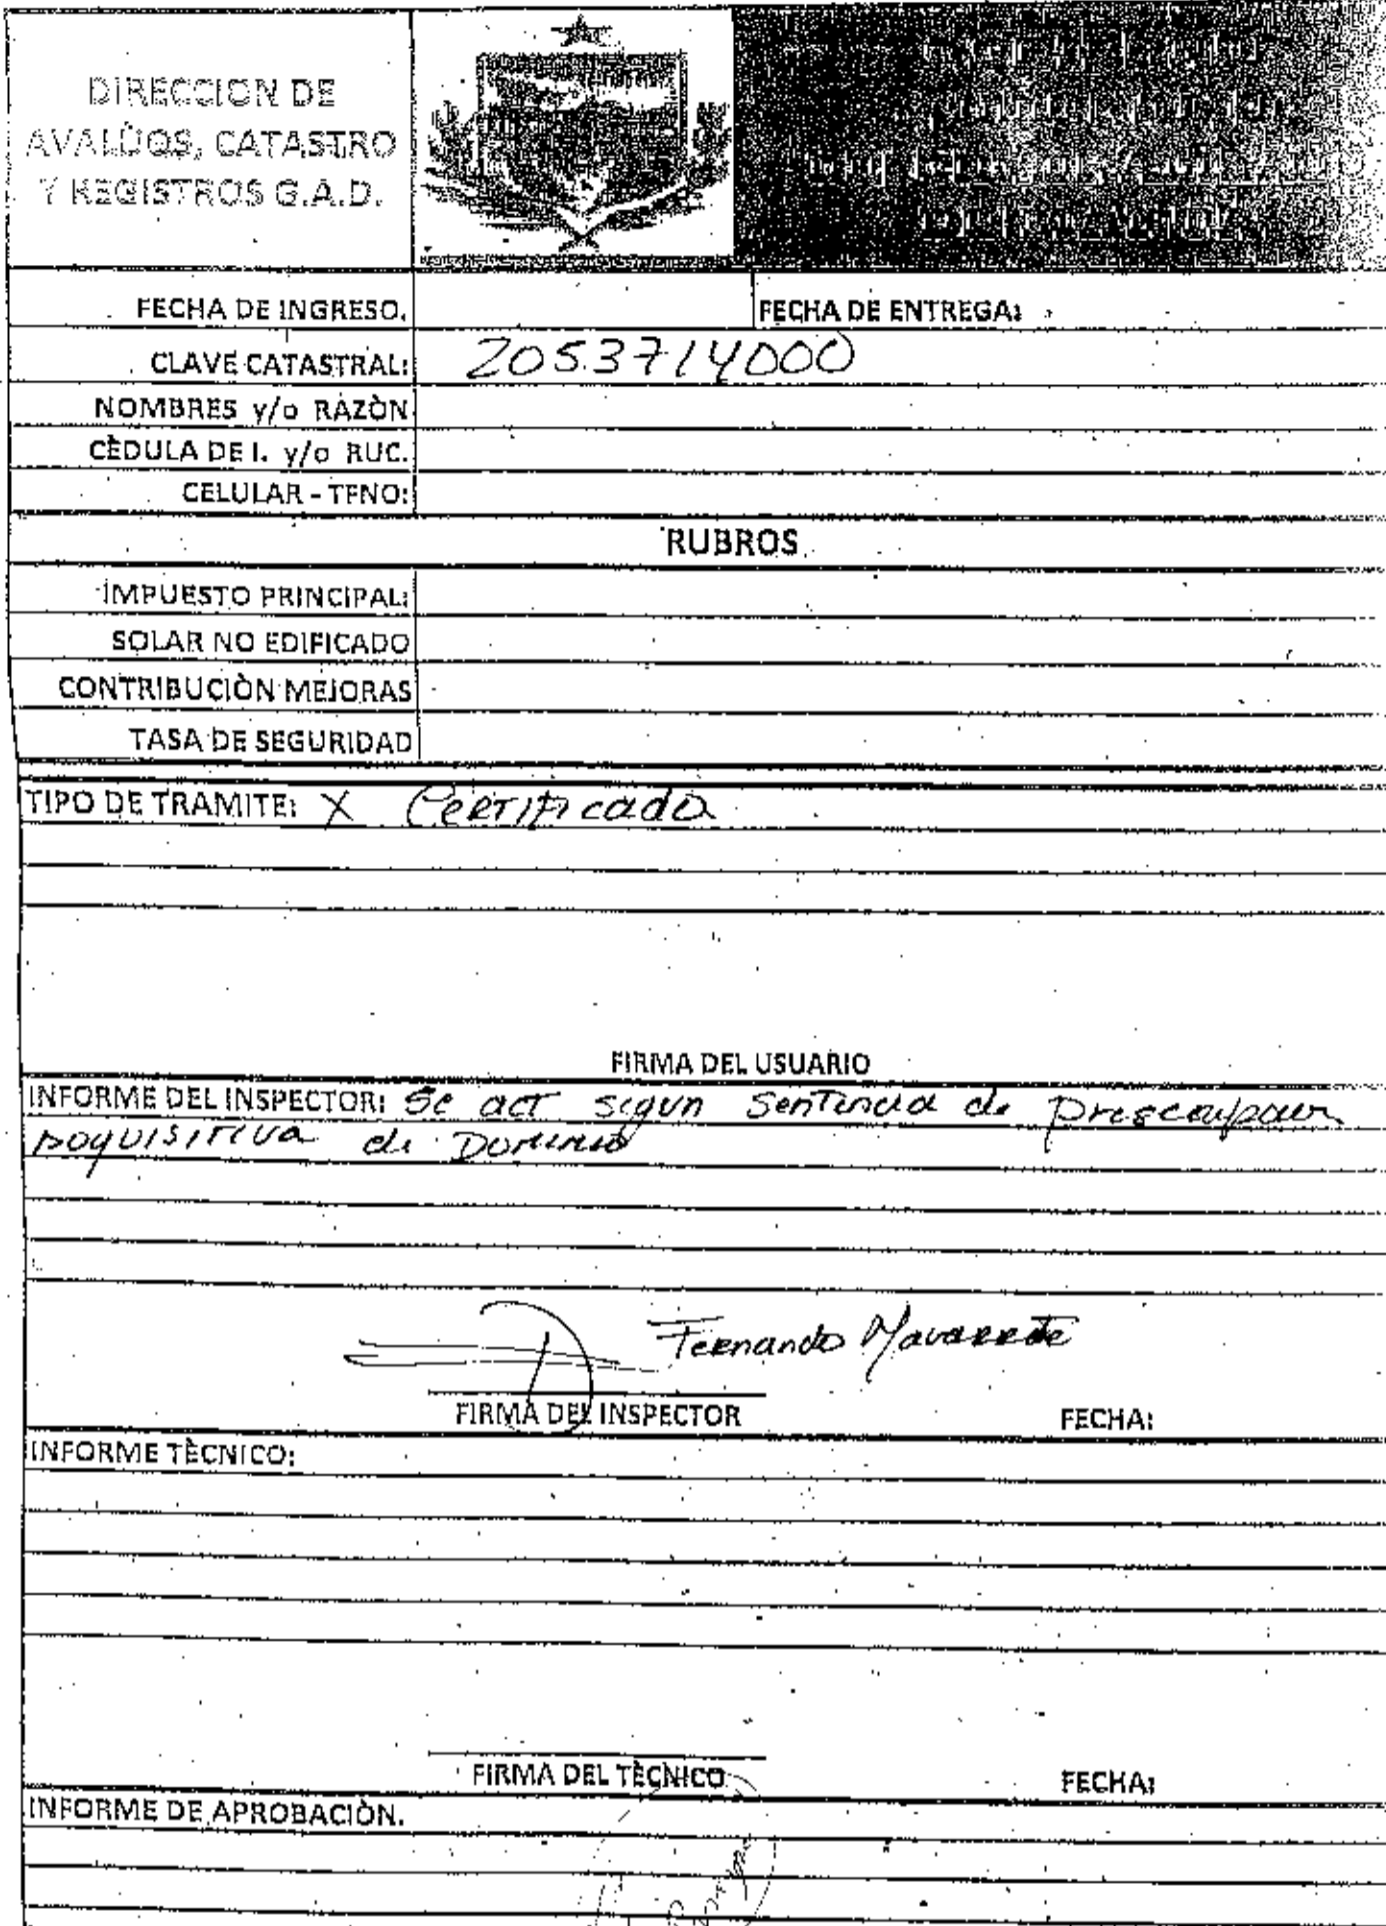 DIRECCION DE
AVALÚOS, CATASTRO
Y REGISTROS G.A.D.
FECHA DE INGRESO. FECHA DE ENTREGA:
CLAVE CATASTRAL: 2053714000
NOMBRES y/o RAZÒN
CÈDULA DE I. y/o RUC.
CELULAR - TFNO:
RUBROS
IMPUESTO PRINCIPAL:
SOLAR NO EDIFICADO
CONTRIBUCIÒN MEJORAS
TASA DE SEGURIDAD
TIPO DE TRAMITE: X Certificado
FIRMA DEL USUARIO
INFORME DEL INSPECTOR: Se act segun sentencia de
de Dominio
Fernando Navarrete
FIRMA DEL INSPECTOR FECHA:
INFORME TÈCNICO:
FIRMA DEL TÈCNICO FECHA:
INFORME DE APROBACIÒN.